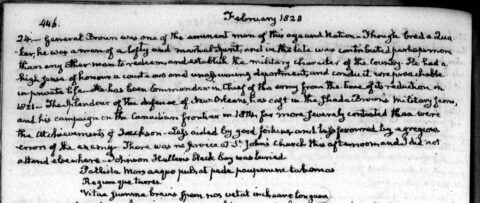 446.
February 1828
24.— General Brown was one of the eminent men of this age and Nation — Though bred a Qua-
ker, he was a man of a lofty and martial Spirit, and in the late war contributed perhaps more
than any other man to redeem and establish the military character of his Country. He had a
high sense of honour a courteous and unassuming deportment, and conduct irreproachable
in private life. He has been Commander in Chief of the army from the time of its reduction in
1821 — The splendour of the defence of New Orleans, has cast in the Shade Brown's Military fame,
and his campaign on the Canadian frontier in 1814 far more severely contested than were
the Achievements of Jackson — Less aided by good fortune, and less favoured by egregious
errors of the enemy. There was no service at St. John's Church this afternoon, and I did not
attend elsewhere — Johnson Hellen's black boy was buried
Pallida Mors aequo pulsat pede pauperum tabernas
Regumque turres
Vitae summa brevis spem nos vetat inchoare longam